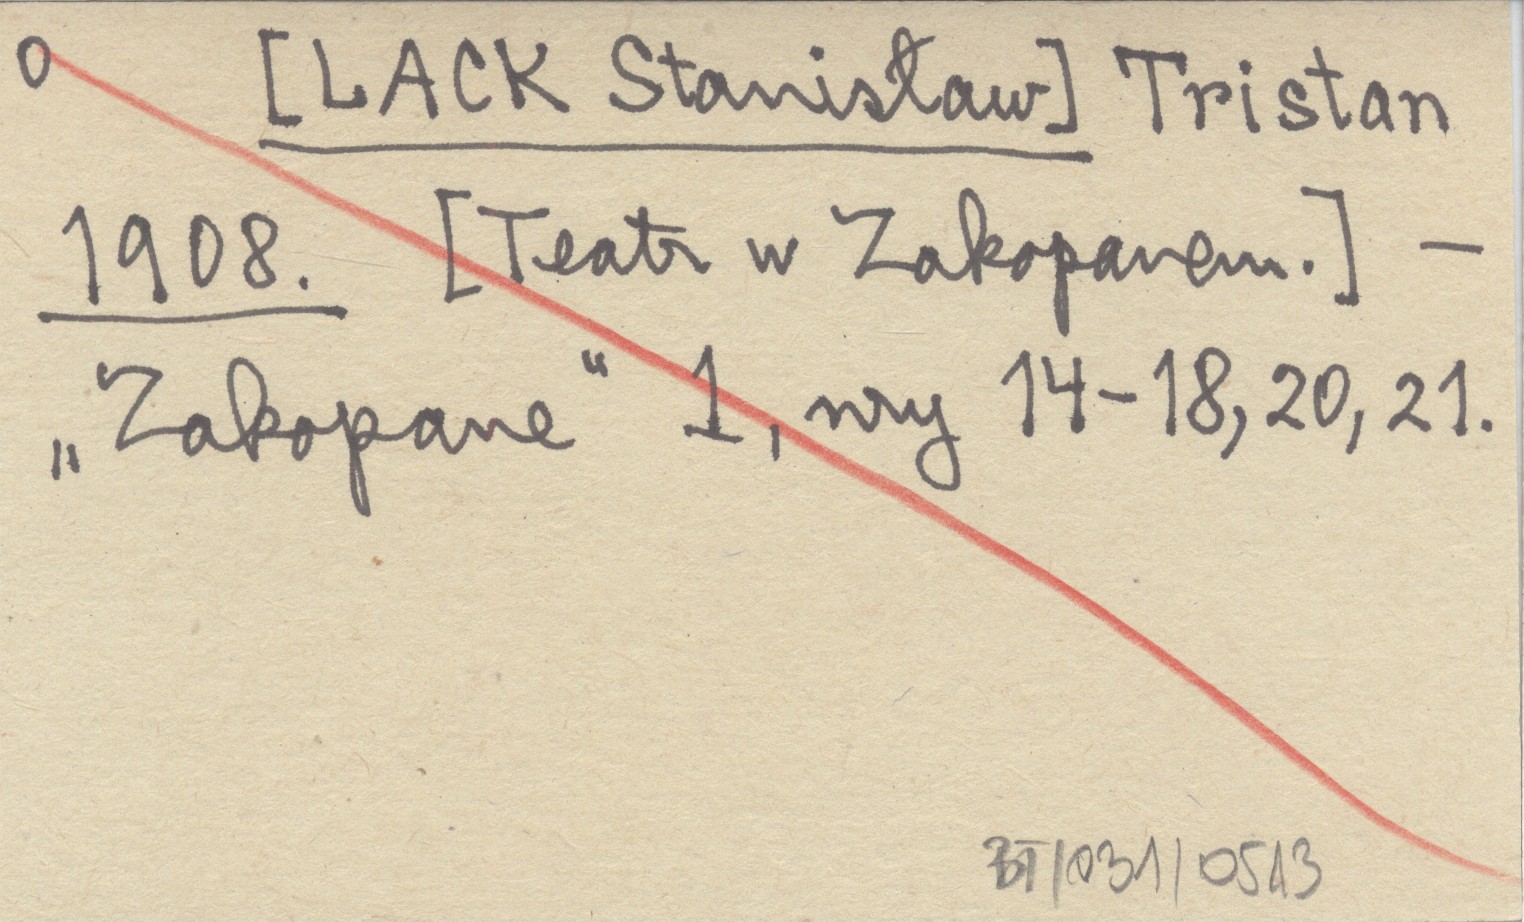 0 [LACK Stanisław] Tristan
1908. [Teatr w Zakopanem.] —
„Zakopane“ 1, nry 14-18, 20, 21.
BT/031/0513